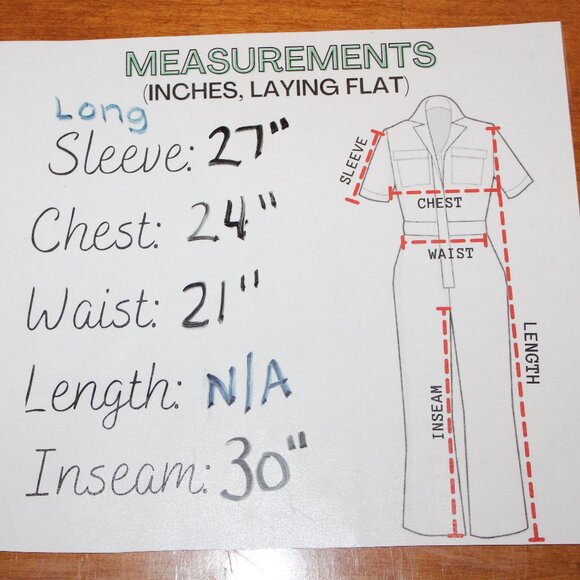 MEASUREMENTS
(INCHES, LAYING FLAT)
Long
Sleeve: 27"
Chest: 24"
Waist: 21"
Length: N/A
Inseam: 30"
SLEEVE
CHEST
WAIST
LENGTH
INSEAM